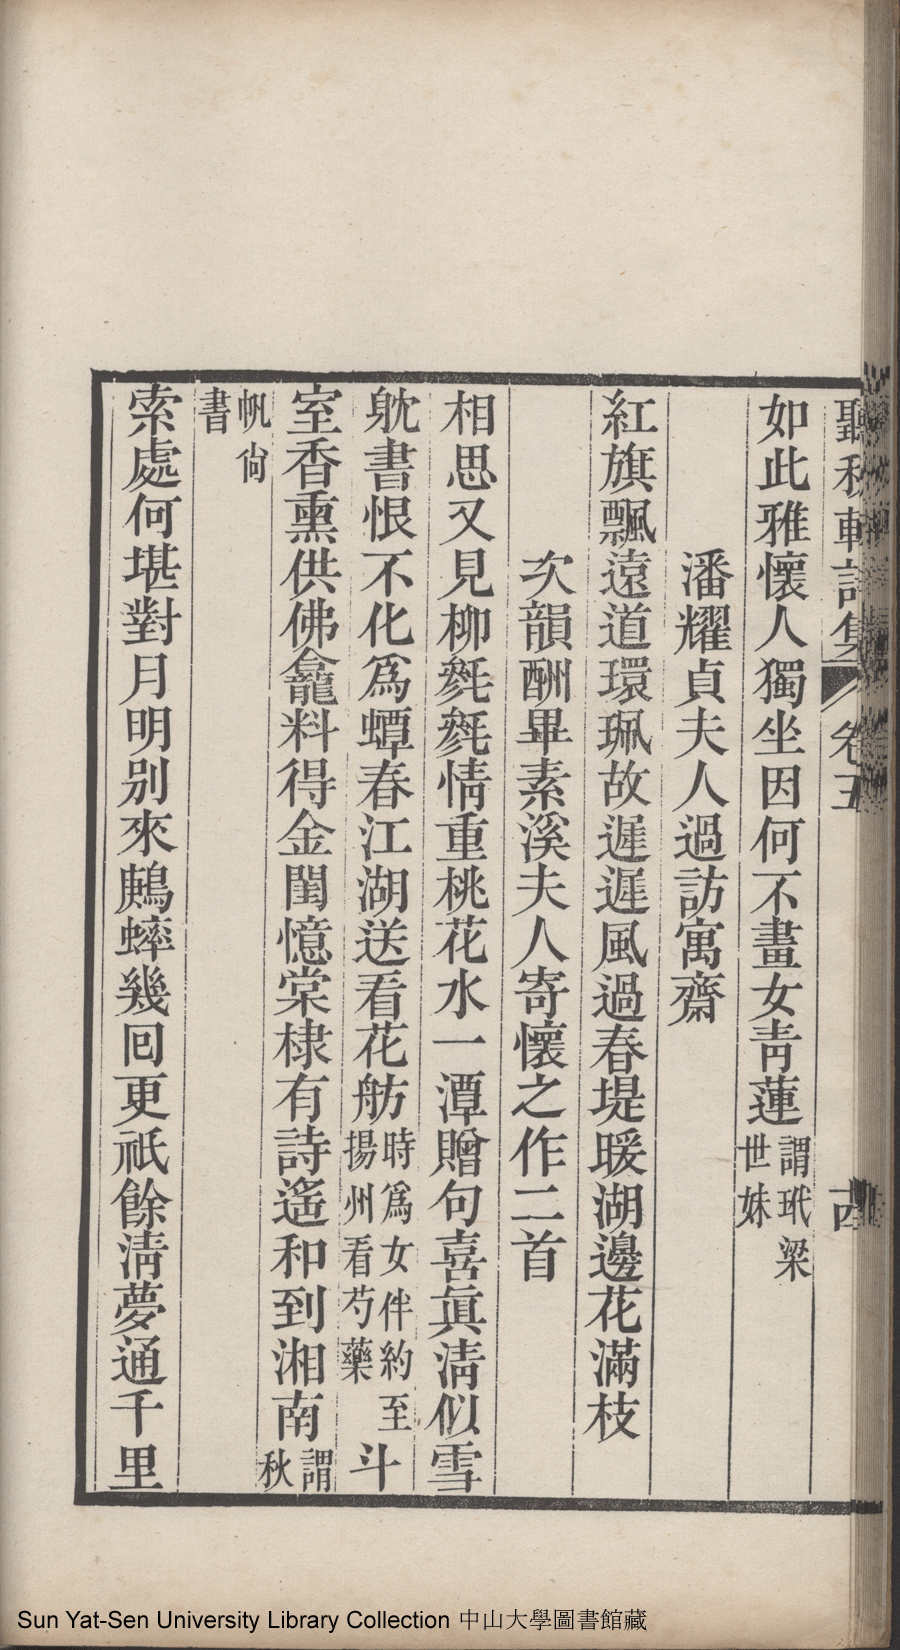 聽秋軒詩集 卷五
如此雅懷人獨坐因何不畫女靑蓮謂玳梁世妹
潘耀貞夫人過訪寓齋
紅旗飄遠道環珮故遲遲風過春堤暖湖邊花滿枝
次韻酬畢素溪夫人寄懷之作二首
相思又見柳毿毿情重桃花水一潭贈句喜眞淸似雪
躭書恨不化爲蟫春江湖送看花舫時爲女伴約至揚州看芍藥斗
室香熏供佛龕料得金閨憶棠棣有詩遙和到湘南謂秋
帆尙書
索處何堪對月明別來鷓蟀幾回更祇餘淸夢通千里
Sun Yat-Sen University Library Collection 中山大學圖書館藏